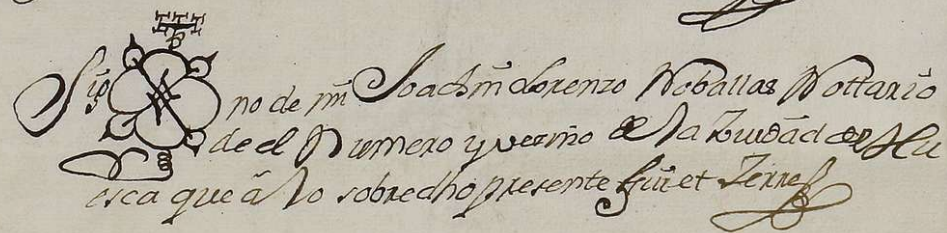 Sig no de mi Joachin Lorenzo Noballas Nottario
de el Numero y vezino de la Ziudad de Hu
esca que a lo sobredho presente fui et Zerre